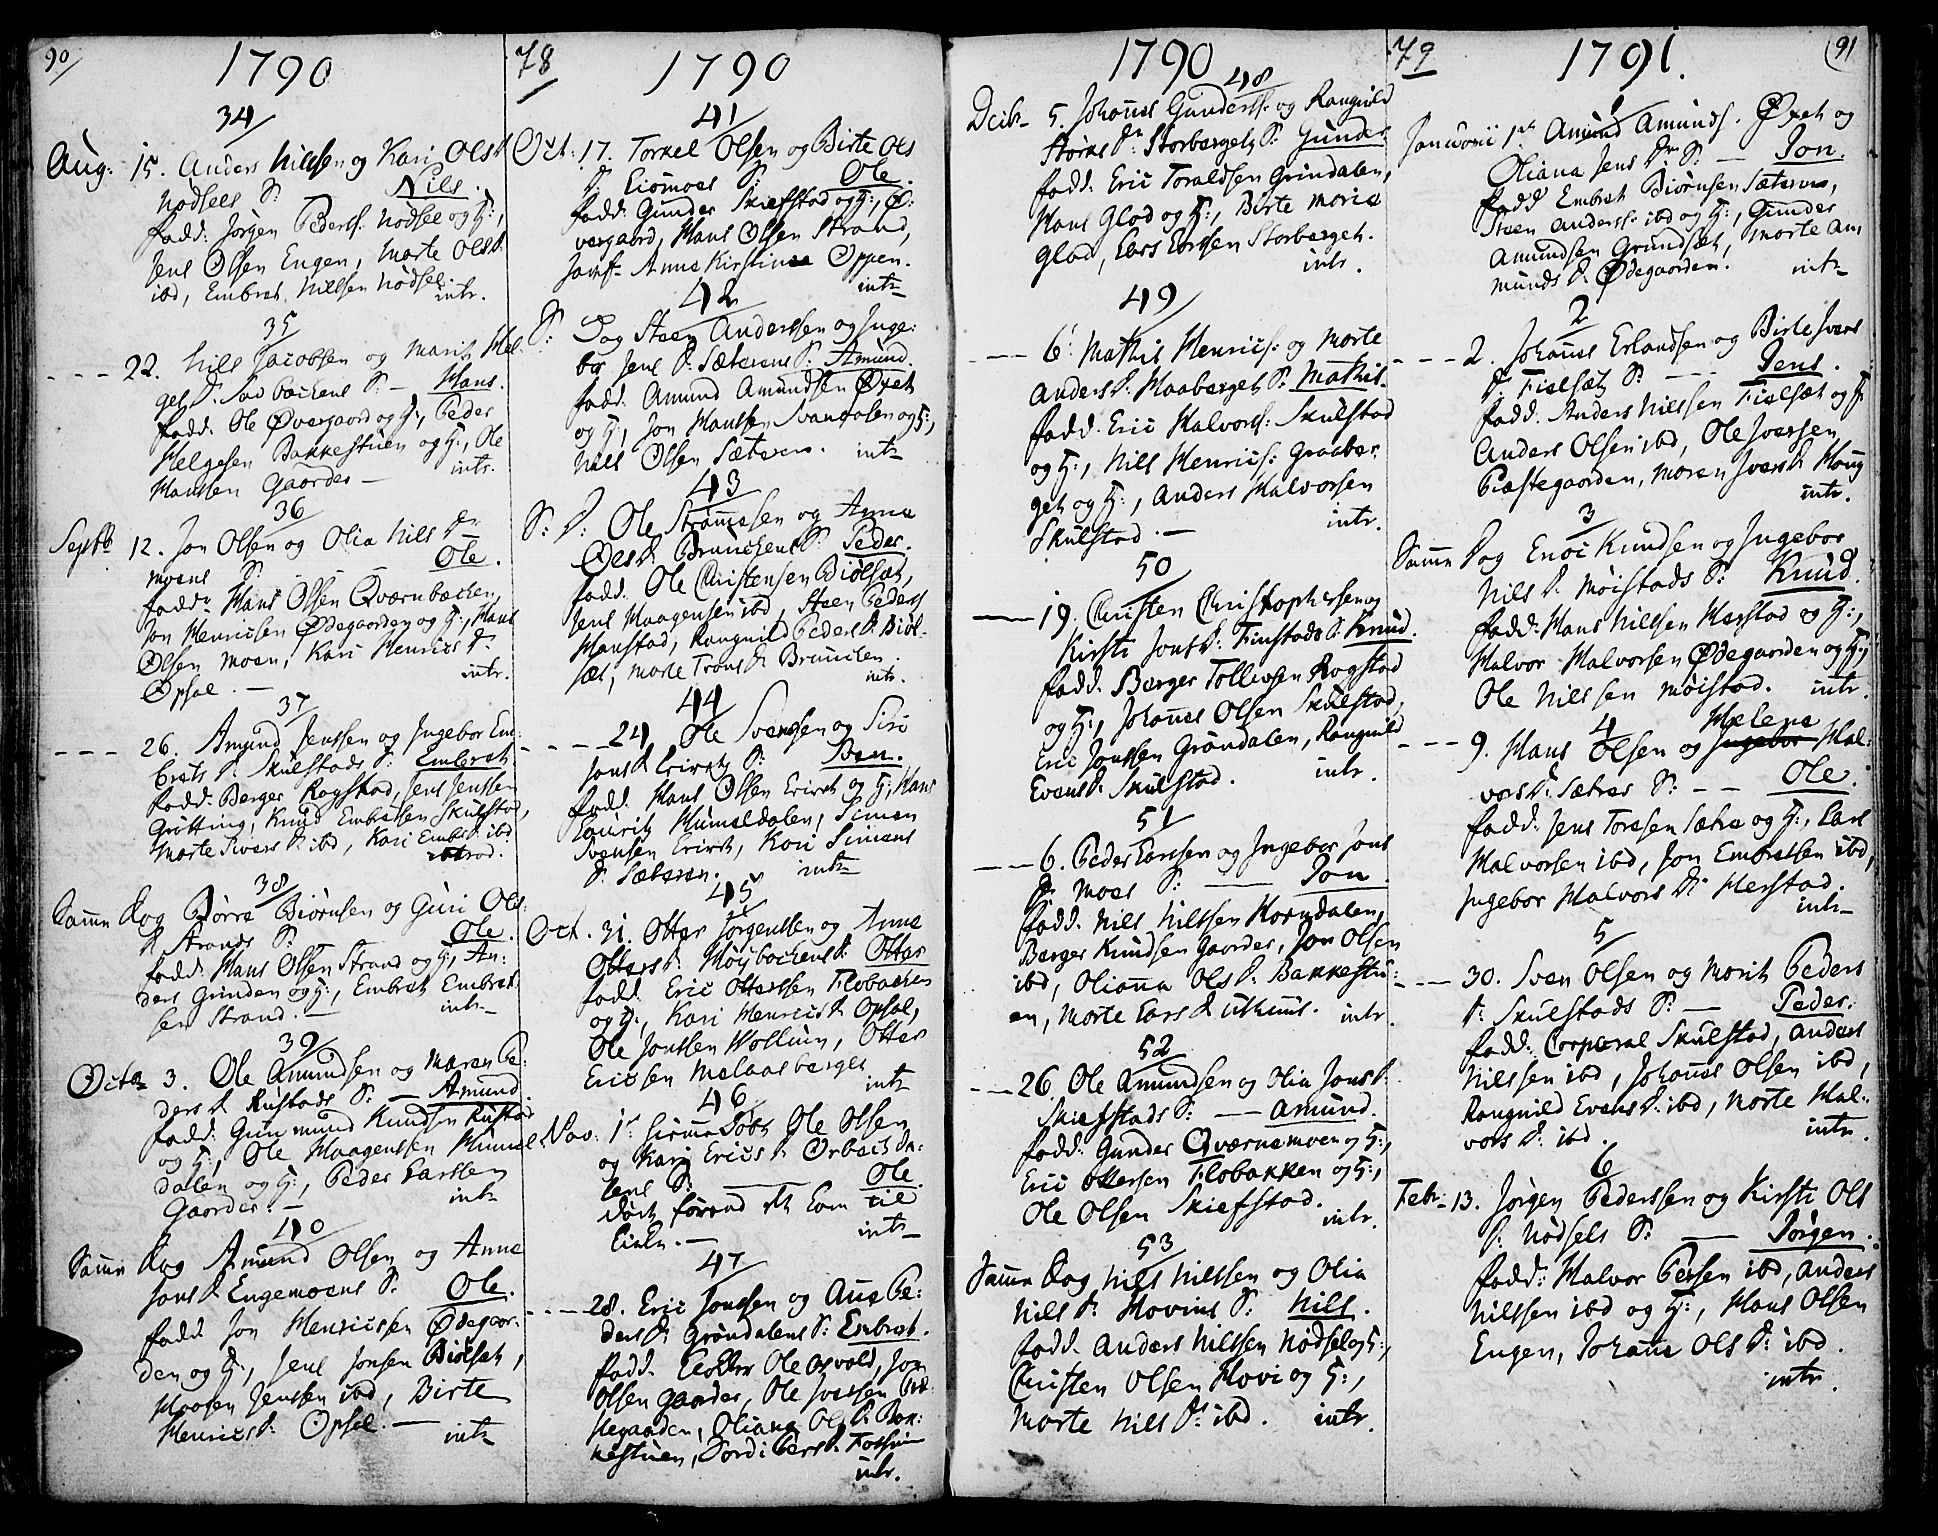 90
1790
34
Aug: 15. Anders Nilssen og Kari Olsd
Nodsees S: Nils.
fadd: Jørgen Pederss. Nodsee og H:,
Jens Olsen Engen, Marte Olsd.
ibd, Embret Nilssen Nodsee.
intr.
35
22. Nils Jacobsen og Marit Hel-
ges D. Sandbachens S: Hans.
fadd. Ole Øvergaard og H:, Peder
Helgesen Bakkestuen og H:, Ole
Hanssen Gaarder — intr.
36
Septb 12. Jon Olsen og Olia Nils Dr
Moens S: Ole.
faddr Hans Olsen Qværnbechen,
Jon Henricsen Ødegaarden og H:, Hans
Olsen Moen, Kari Henrics Dr
Opsal. — intr.
37
26. Amund Jenssen og Ingebor Em-
brets D. Skulstads S: Embret
fadd: Berger Rogstad, Jens Jenssen
Grøtting, Knud Embretsen Skulstad,
Marte Ivers D. ibd, Kari Embr. D. ibd.
introd.
38
Samme Dag Børre Biørnsen og Guri Ols:
D Strands S: Ole.
fadd. Hans Olsen Strand og H:, An-
ders Grinden og H:, Embret Embret-
sen Strand. — intr.
39
Octbr 3. Ole Amundsen og Maren Pe-
ders D Rustads S: — Amund
fadd: Gunmund Knudsen Rustad
og H:, Ole Haagensen Hummel
dalen og H:, Peder Larssen
Gaarder. — intr
40
Samme Dag Amund Olsen og Anne
Jons D Engemoens S: Ole.
fadd Jon Henricsen Ødegaar-
den og H:, Jens Jonsen Biølset,
Haagen Jenssen ibd, Birte
Henrics D. Opsal. — intr
78
1790
41
Oct: 17. Torkel Olsen og Birte Ols
D. Eiomoes S: Ole.
fadd: Gunder Skiefstad og H:, Ø-
vergaard, Hans Olsen Strand,
Jomfr Anne Kirstine Oppen.
intr
42
S: Dag Steen Anderssen og Inge:
bor Jens D. Sæterens S: Amund.
fadd. Amund Amundsen Øxet
og H:, Jon Hanssen Svandalen og H:,
Nils Olsen Sæteren. intr
43
S: D: Ole Strømssen og Anne
Oles D. Brunchens S: Peder.
fadd. Ole Christensen Biølset,
Jens Haagensen ibd, Steen Pederss
Hanstad, Rangnild Peders D. Biøl-
set, Marte Trons D. Brunchen.
intr.
44
24 Ole Svendsen og Siri
Jons D Erirets S: Sven.
fadd. Hans Olsen Eriret og H:, Hans
Laurits Humeldalen, Simen
Svensen Eriret, Kari Simens
D. Sæteren. intr
45
Oct. 31. Otter Jørgenssen og Anne
Otters D. Moysbachens S: Otter
fadd. Eric Otterssen Flobacken
og H:, Kari Henrics D Opsal,
Ole Jonssen Hollum, Otter
Ericsen Melaasberget
intr
46
Nov: 1r hiemedøbt Ole Olsen
og Kari Erics D Orbech da-
lens S: Ole.
døbt forend det kom til
Kirken. — intr
47
28. Eric Jonssen og Ane Pe-
ders D. Grøndalens S: Embret.
fadd. Ole Opvold, Jon
Olsen Gaarder, Ole Iverssen Præ-
stegaarden, Oliana Ols D. Bak-
kestuen, Jordi Pers D. Fossum
intr.
1790
48
Dcibr 5. Johannes Gunderss: og Rangnild
Størkes Dr. Storbergets S: Gunder
fadd: Eric Toraldsen Grindalen,
Hans Glad og H:, Birte Marie
Glad, Lars Larssen Storberget.
intr.
49
6. Mathis Henrics: og Marte
Anders D. Haaberget S: Mathis.
fadd. Eric Halvorss: Skulstad
og H:, Nils Henrics: Graaber-
get og H:, Anders Halvorsen
Skulstad. — intr.
50
19. Christen Christophersen og
Kirsti Jons D. Finstads S: Knud.
fadd. Berger Tollevsen Rogstad
og H:, Johannes Olsen Skulstad,
Eric Jonssen Grøndalen, Rangnild
Evens D. Skulstad. intr.
51
6. Peder Larssen og Ingebor Jons
D. Moes S: — Jon.
fadd. Nils Nilssen Horndalen,
Berger Knudsen Gaarder, Jon Olsen
ibd, Olianna Ols D. Bakkestu-
en, Marte Lars D Utheims. intr.
52
26 Ole Amundsen og Olia Jons D.
Skiefstads S: — Amund.
fadd. Gunder Qværnemoen og H:,
Eric Ottersen Flobakken og H:,
Ole Olsen Skiefstad.
intr.
53
Samme Dag Nils Nilssen og Olia
Nils D. Hovins S: Nils.
fadd. Anders Nilssen Nodsel og H:,
Christen Olsen Hovi og H:,
Marte Nils D. ibd. intr.
79
1791.
91
1
Januarii 1st Amund Amunds. Øxet og
Oliana Jens Dr S: — Jon.
fadd Embret Biørnsen Sæteren,
Steen Anderss: ibd og H:, Gunder
Amundsen Grundset, Marte Am
munds D. Ødegaarden. intr
2
2. Johannes Erlandsen og Birte Ivers
D. Fielset S: Jens.
fadd. Anders Nilssen Fielset og H
Anders Olsen ibd, Ole Iversen
Præstegaarden, Maren Ivers D. Haug
intr.
3
Samme Dag Enoc Knudsen og Ingebor
Nils D. Moistads S: Knud.
fadd: Hans Nilssen Herstad og H:,
Halvor Halvorsen Ødegaarden og H:,
Ole Nilssen Moistad. intr.
4
9. Hans Olsen og Ingebor Helene Hal-
vors D. Sætres S: — Ole.
fadd: Jens Toresen Sætre og H:, Lars
Halvorsen ibd, Jon Embretsen ibd,
Ingebor Halvors Dr Herstad.
intr
5
30. Sven Olsen og Marit Peders
D. Skulstads S: — Peder.
fadd: Corporal Skulstad, Anders
Nilssen ibd, Johannes Olsen ibd,
Rangnild Evens D. ibd, Marte Hal-
vors D. ibd. intr.
6
Febr: 13. Jørgen Pederssen og Kirsti Ols
D. Nodsels S: — Jørgen.
fadd: Halvor Persen ibd, Anders
Nilssen ibd og H:, Hans Olsen
Engen, Johanne Ols D. ibd.
intr.